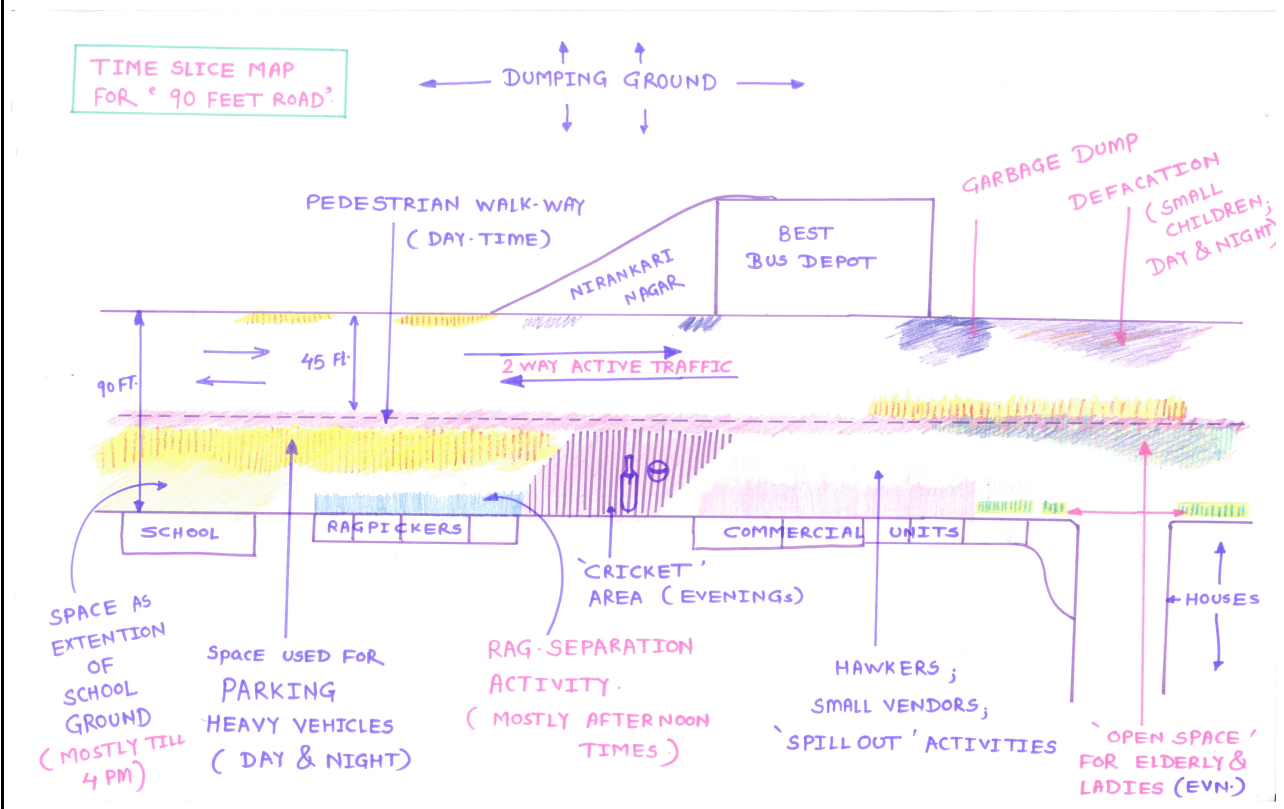 TIME SLICE MAP
FOR ' 90 FEET ROAD'.
DUMPING GROUND
GARBAGE DUMP
DEFACATION
(SMALL
CHILDREN;
DAY & NIGHT)
PEDESTRIAN WALK-WAY
(DAY-TIME)
NIRANKARI
NAGAR
BEST
BUS DEPOT
90 FT.
45 Ft.
2 WAY ACTIVE TRAFFIC
SCHOOL
RAGPICKERS
COMMERCIAL UNITS
'CRICKET'
AREA (EVENINGS)
HOUSES
SPACE AS
EXTENTION
OF
SCHOOL
GROUND
(MOSTLY TILL
4 PM)
SPACE USED FOR
PARKING
HEAVY VEHICLES
(DAY & NIGHT)
RAG-SEPARATION
ACTIVITY.
(MOSTLY AFTERNOON
TIMES.)
HAWKERS;
SMALL VENDORS;
'SPILL OUT' ACTIVITIES
'OPEN SPACE'
FOR ELDERLY &
LADIES (EVN.)